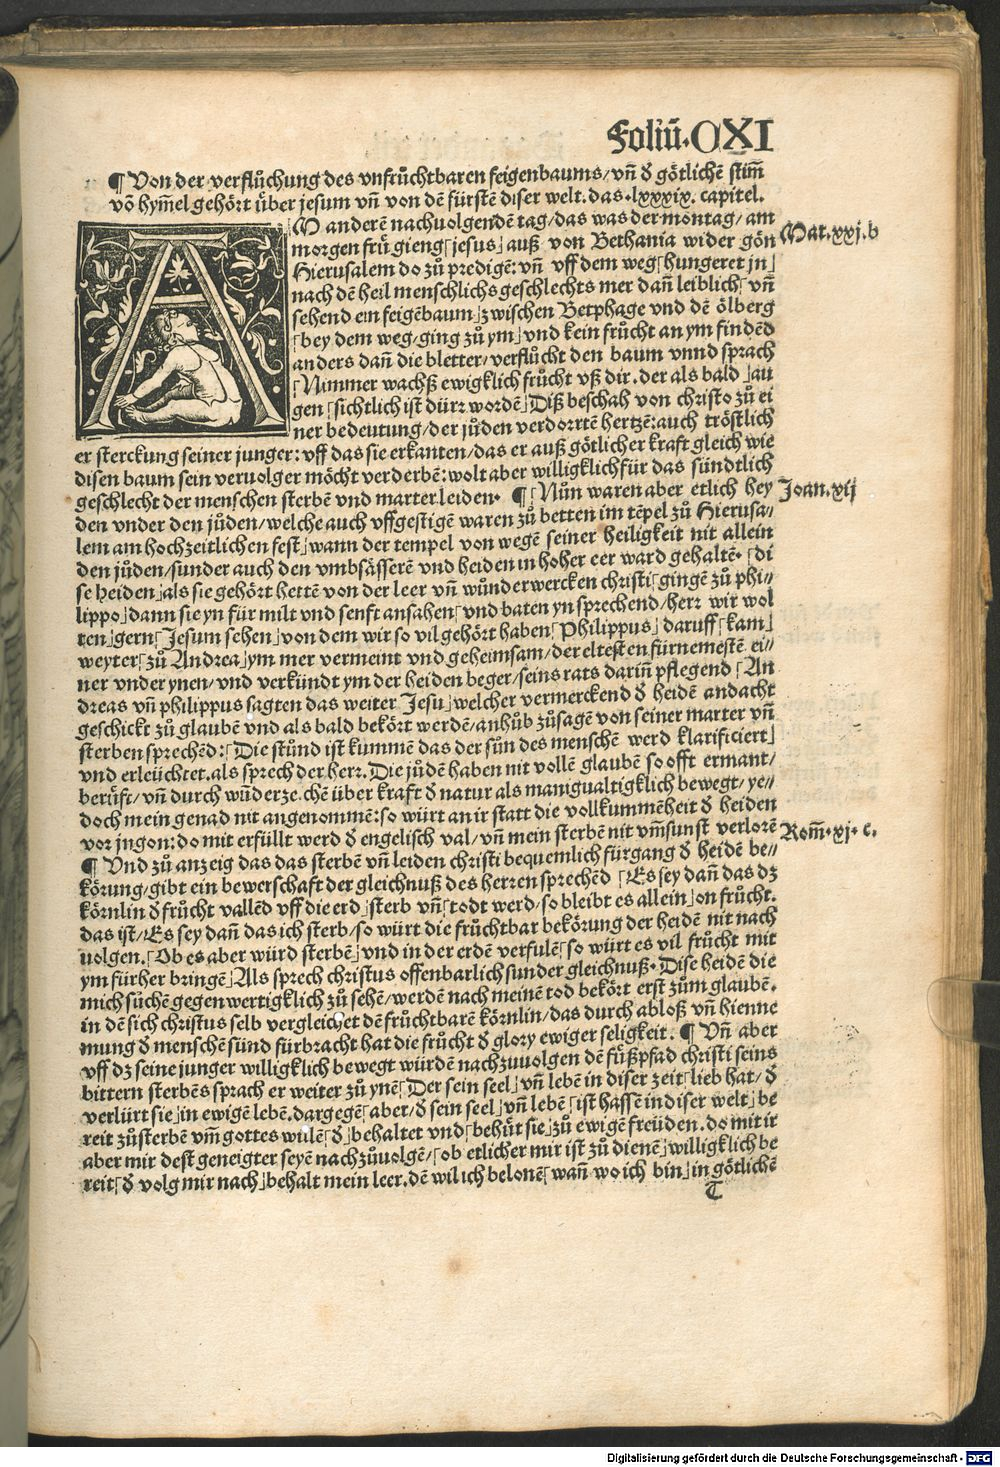 Foliū. CXI
¶ Von der verflůchung des vnfrůchtbaren feigenbaums/ vñ d̕ götlichē stim̄
vō hym̄el gehört über jesum vñ von dē fürstē diser welt. das. lxxxix. capitel.
AM anderē nachuolgendē tag/ das was der montag/ am
morgen frü gieng ⌈jesus⌋ auß von Bethania wider gön
Hierusalem do zů predigē: vñ vff dem weg ⌈hungeret jn⌋
nach dē heil menschlichs geschlechts mer dañ leiblich⌈ vñ
sehend ein feigēbaum⌋ zwischen Betphage vnd dē ölberg
⌈bey dem weg/ ging zů ym⌋ vnd kein frůcht an ym findēd
anders dañ die bletter/ verflůcht den baum vnnd sprach
⌈Nimmer wachß ewigklich frůcht vß dir. der als bald⌋ au
gen ⌈sichtlich ist dürr wordē⌋ Diß beschah von christo zů ei
ner bedeutung/ der jüden verdorrtē hertzē: auch tröstlich
er sterckung seiner junger: vff das sie erkanten/ das er auß götlicher kraft gleich wie
disen baum sein veruolger möcht verderbē: wolt aber willigklich für das sündtlich
geschlecht der menschen sterbē vnd marter leiden. ¶ ⌈Nůn waren aber etlich hey
den vnder den jüden/ welche auch vffgestigē waren zů betten im tēpel zů Hierusa/
lem am hochzeitlichen fest⌋ wann der tempel von wegē seiner heiligkeit nit allein
den jüden/ sunder auch den vmbsässerē vnd heiden in hoher eer ward gehaltē. ⌈di
se heiden⌋ als sie gehört hettē von der leer vñ wůnderwercken christi ⌈gingē zů phi//
lippo⌋ dann sie yn für milt vnd senft ansahen⌈ vnd baten yn sprechend/ herr wir wol
ten⌋ gern ⌈Jesum sehen⌋ von dem wir so vil gehört haben ⌈Philippus⌋ daruff ⌈kam⌋
weyter ⌈zů Andrea⌋ ym mer vermeint vnd geheimsam/ der eltesten fürnemestē ei//
ner vnder ynen/ vnd verkündt ym der heiden beger/ seins rats dariñ pflegend ⌈An
dreas vñ philippus sagten das weiter Jesu⌋ welcher vermerckend d̕ heidē andacht
geschickt zů glaubē vnd als bald bekört werdē/ anhůb zůsagē von seiner marter vñ
sterben sprechēd: ⌈Die stůnd ist kummē das der sůn des menschē werd klarificiert⌋
vnd erleüchtet. als sprech der herr. Die jüdē haben nit vollē glauben so offt ermant/
berüft/ vñ durch wůderze chē über kraft d̕ natur als manigualtigklich bewegt/ ye//
doch mein genad nit angenommē: so würt an ir statt die vollkummēheit d̕ heiden
vor jn gon: do mit erfüllt werd d̕ engelisch val/ vñ mein sterbē nit vm̄sunst verlorē
¶ Vnd zů anzeig das das sterbē vñ leiden christi bequemlich fürgang d̕ heidē be//
körung/ gibt ein bewerschaft der gleichnuß des herren sprechēd ⌈Es sey dañ das dz
körnlin d̕ frůcht vallēd vff die erd⌋ sterb vñ ⌈todt werd/ so bleibt es allein⌋ on frůcht.
das ist/ Es sey dañ das ich sterb/ so würt die früchtbar bekörung der heidē nit nach
uolgen. ⌈Ob es aber würd sterbē⌋ vnd in der erdē verfulē ⌈so würt es vil frůcht mit
ym fürher bringē⌋ Als sprech christus offenbarlich sunder gleichnuß. Dise heidē die
mich sůchē gegenwertigklich zů sehē/ werdē nach meinē tod bekört erst zům glaubē.
in dē sich christus selb vergleichet dē früchtbarē körnlin/ das durch abloß vñ hienne
mung d̕ menschē sünd fürbracht hat die frůcht d̕ glory ewiger seligkeit. ¶ Vñ aber
vff dz seine junger willigklich bewegt würdē nachzuuolgen dē fůßpfad christi seins
bittern sterbēs sprach er weiter zů ynē ⌈Der sein seel⌋ vñ lebē in diser zeit ⌈lieb hat/ d̕
verlürt sie⌋ in ewigē lebē. dargegē aber/ d̕ sein seel⌋ vñ lebē ⌈ist hassē in diser welt⌋ be
reit zůsterbē vm̄ gottes willē ⌈d̕⌋ behaltet vnd ⌈behüt sie⌋ zů ewigē freüden. do mit ir
aber mir dest geneigter seyē nachzůuolgē/ ⌈ob etlicher mir ist zů dienē⌋ willigklich be
reit ⌈d̕ volg mir nach⌋ behalt mein leer. dē wil ich belonē ⌈wañ wo ich bin⌋ in götlichē
T
Mat. xxj. b
Joan. xij
Rom̄. xj. c.
Digitalisierung gefördert durch die Deutsche Forschungsgemeinschaft - DFG